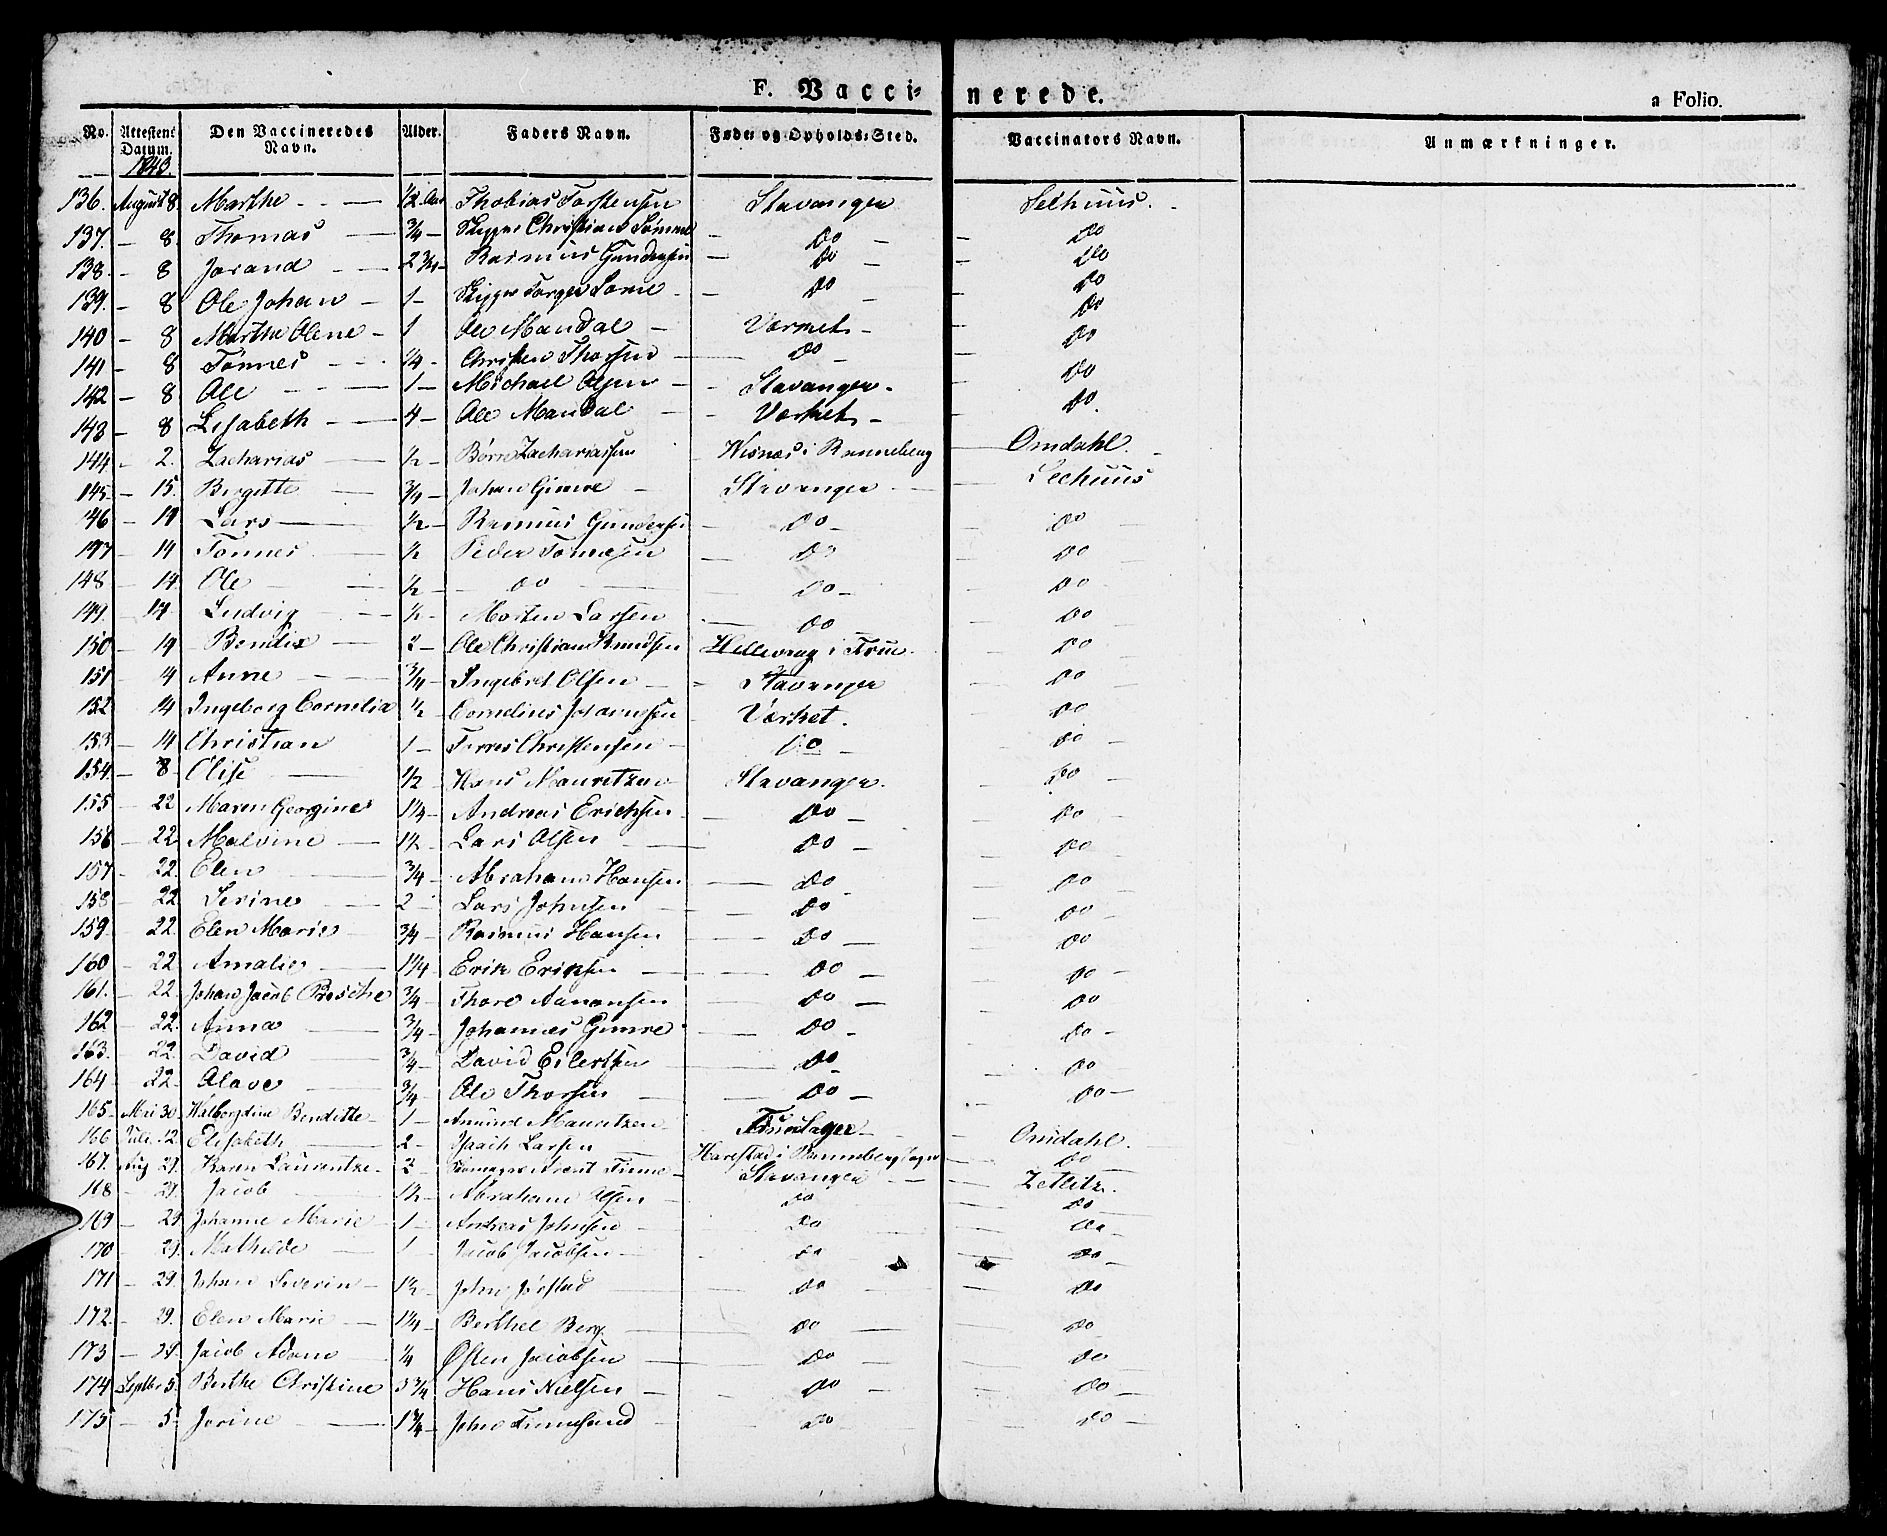 F. Vaccinerede. a Folio.
No. Attestens Datum. Den Vaccineredes Navn. Alder. Faders Navn. Føde- og Opholds-Sted. Vaccinators Navn. Anmærkninger.
1843.
136. August 8. Marthe - - — 1/2 Aar Thobias Torstensen Stavanger Selhuus.
137. — 8. Thomas — 3/4 — Skipper Christian Sømme — Do — — Do
138. — 8 Jorand — 2 3/4 — Rasmus Gundersen — Do — — Do
139. — 8 Ole Johan — 1 — Skipper — Do — — Do
140 — 8 Marthe Olene — 1 Ole Mandal — Værket — — Do
141 — 8 Tønnes - - 1/4 — Christen Thorsen — Do — — Do
142 — 8 Ole - - — 1 — Michael Olsen — Stavanger. — Do
143 — 8 Lisabeth — 4 — Ole Mandal — Værket — — Do.
144 — 2. Zacharias — 1/2 — Børre Zachariassen — Wisnæs i Renneberg — Omdahl.
145 — 15. Birgitte — 3/4 — Johan Gimre — Stavanger — — Selhuus
146 — 14 Lars — 1/2 — Rasmus Gundersen — Do — — Do
147 — 14 Tønnes — 1/2 Peder Tønnesen — Do — Do
148 — 14 Ole — 1/2 — Do — Do — Do
149. — 14 Ludvig — 1/2 — Morten Larsen — Do — Do
150 — 14 Bendix — 2 — Ole Christian Knudsen Hellevaag i Frue. — Do
151 — 14 Anne — 3/4 — Ingebret Olsen — Stavanger — Do
152 14 Ingeborg Cornelia 1/2 — Cornelius Johannesen — Værket. — Do
153 — 14 Christian 1 — Tørres Christensen — Do — — Do —
154. — 8 Olise — 1/2 — Hans Mauritzen — Stavanger. — Do —
155 — 22 Maren Georgine 1 1/4 — Andreas Erichsen — Do — — Do
156 — 22 Malvine — 1 1/2 — Lars Olsen — Do — — Do
157 — 22. Elen — 3/4 — Abraham Hansen — Do — Do
158 — 22 Serine — 2 — Lars Johnsen — Do — Do
159. — 22. Elen Marie — 3/4 — Rasmus Hansen — Do — — Do
160 — 22 Amalie — 1 1/4 — Erik Eriksen — Do — — Do —
161. — 22. Johan Jacob 3/4 — Thore Aanensen — Do — — Do
162 — 22. Anna — 3/4 — Johannes Gimre — Do — — Do —
163. — 22. David — 3/4 — David Eilertsen — Do — Do
164 — 22 Olave — 3/4 Ole Thorsen — Do — — Do —
165 — Mai 30. Walborgdine Benditte — 1 — Mauritzen —
166 Juli 12 Elisabeth — 2 — Larsen — — Omdahl.
167. Aug 29. Karen Laurentze — 2 — Harestad i Renneberg — Do
168 — 29. Jacob — 1 1/2 — Abraham Olsen — Stavanger — — Zetlitz.
169 — 29 Johanne Marie — 1 — Andreas Johnsen — Do — Do
170 — 29. Mathilde — 1 — Jacob Jacobsen — Do — Do
171 — 29. Johan Severin — 1 1/2 — John Jørstad — Do — Do
172. — 29. Elen Marie — 1 1/4 — Berthel Berg — Do — — Do
173 — 29. Jacob Adam — 1/4 Østen Jacobsen — Do — — Do
174 Septbr. 5. Berthe Christine 3 3/4 — Hans Nielsen — Do — — Do —
175 — 5. Jorine — 1 3/4 — John — Do — Do —